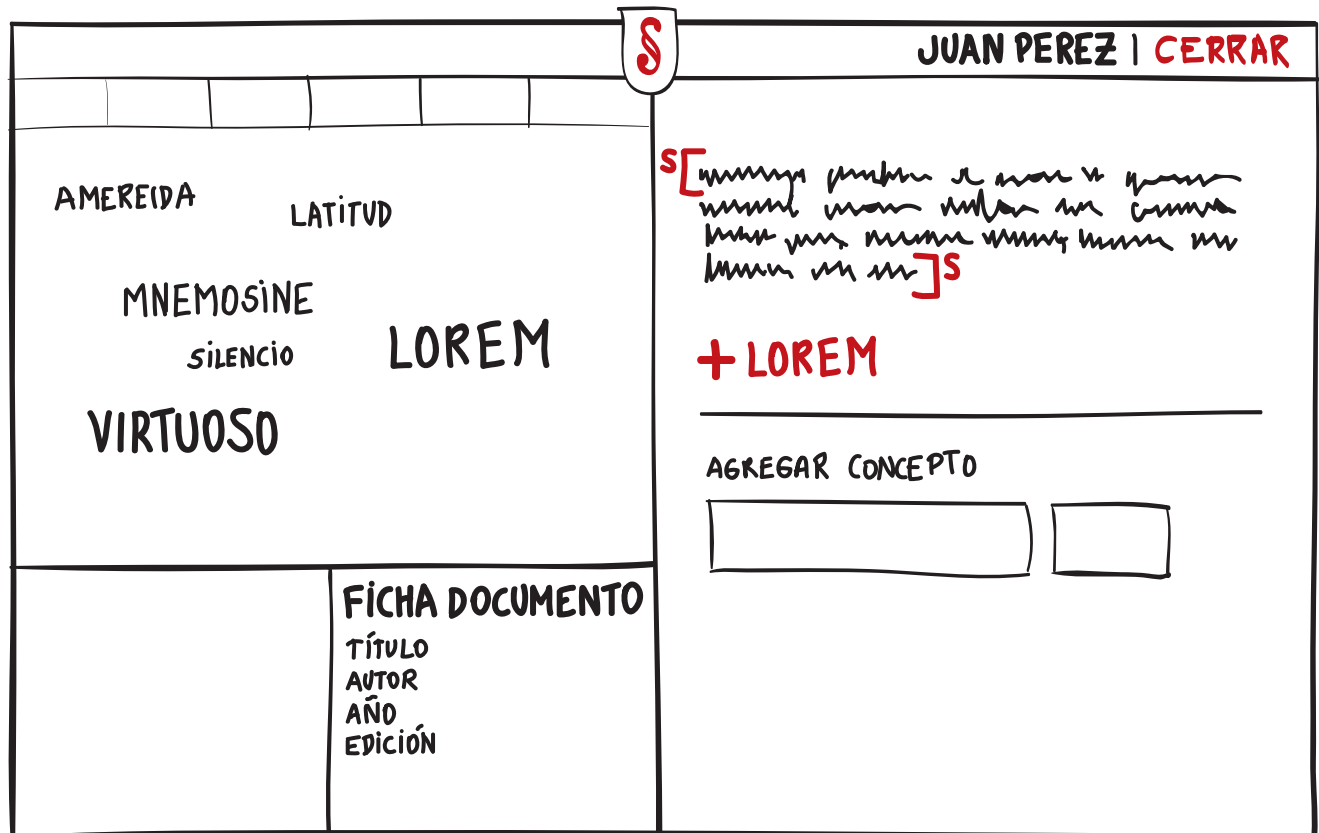 §
JUAN PEREZ | CERRAR
AMEREIDA
LATiTUD
MNEMOSiNE
SiLENCIO
LOREM
VIRTUOSO
FiCHA DOCUMENTO
TÍTULO
AUTOR
AÑO
EDiCiÓN
S[
]S
+ LOREM
AGREGAR CONCEPTO